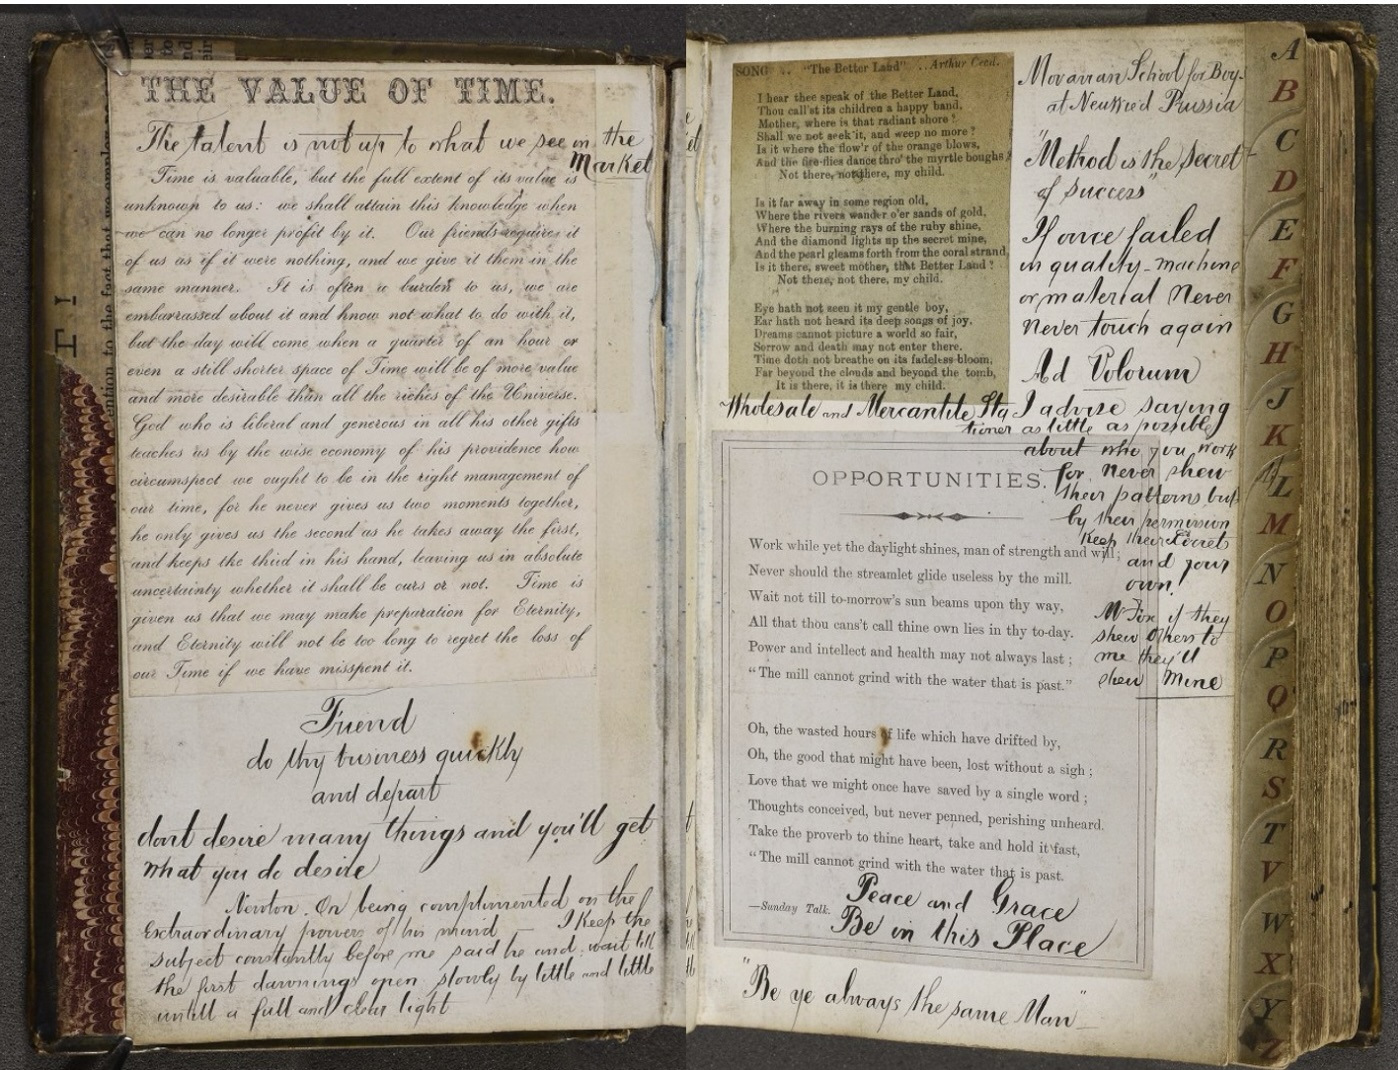 THE VALUE OF TIME.
The talent is not up to what we see in the
Market
Time is valuable, but the full extent of its value is
unknown to us: we shall attain this knowledge when
we can no longer profit by it. Our friends requires it
of us as if it were nothing, and we give it them in the
same manner. It is often a burden to us, we are
embarrassed about it and know not what to do with it,
but the day will come when a quarter of an hour or
even a still shorter space of Time will be of more value
and more desirable than all the riches of the Universe.
God who is liberal and generous in all his other gifts
teaches us by the wise economy of his providence how
circumspect we ought to be in the right management of
our time, for he never gives us two moments together,
he only gives us the second as he takes away the first,
and keeps the third in his hand, leaving us in absolute
uncertainty whether it shall be ours or not. Time is
given us that we may make preparation for Eternity,
and Eternity will not be too long to regret the loss of
our Time if we have misspent it.
Friend
do thy business quickly
and depart
dont desire many things and you'll get
what you do desire
Newton. On being complimented on the
Extraordinary powers of his mind I keep the
subject constantly before me said he and wait till
the first dawnings open slowly by little and little
untill a full and clear light
SONG .. "The Better Land" .. Arthur Cecil.
I hear thee speak of the Better Land,
Thou call'st its children a happy band.
Mother, where is that radiant shore?
Shall we not seek it, and weep no more?
Is it where the flow'r of the orange blows,
And the fire-flies dance thro' the myrtle boughs?
Not there, not there, my child.
Is it far away in some region old,
Where the rivers wander o'er sands of gold,
Where the burning rays of the ruby shine,
And the diamond lights up the secret mine,
And the pearl gleams forth from the coral strand,
Is it there, sweet mother, that Better Land?
Not there, not there, my child.
Eye hath not seen it my gentle boy,
Ear hath not heard its deep songs of joy,
Dreams cannot picture a world so fair,
Sorrow and death may not enter there.
Time doth not breathe on its fadeless bloom,
Far beyond the clouds and beyond the tomb,
It is there, it is there my child.
Movarian School for Boys
at Neuwied Prussia
"Method is the secret
of success"
If once failed
in quality - machine
or material Never
never touch again
Ad Volorum
Wholesale and Mercantile Sta
tioner
I advise saying
as little as possible
about who you work
for never shew
their patterns but
by their permission
Keep their secrets
and your
own.
Mr Fox if they
shew others to
me they'll
shew Mine
OPPORTUNITIES.
Work while yet the daylight shines, man of strength and will;
Never should the streamlet glide useless by the mill.
Wait not till to-morrow's sun beams upon thy way,
All that thou cans't call thine own lies in thy to-day.
Power and intellect and health may not always last;
"The mill cannot grind with the water that is past."
Oh, the wasted hours of life which have drifted by,
Oh, the good that might have been, lost without a sigh;
Love that we might once have saved by a single word;
Thoughts conceived, but never penned, perishing unheard.
Take the proverb to thine heart, take and hold it fast,
"The mill cannot grind with the water that is past.
—Sunday Talk.
Peace and Grace
Be in this Place
"Be ye always the same Man"
A
B
C
D
E
F
G
H
J
K
L
M
N
O
P
Q
R
S
T
V
W
X
Y
Z